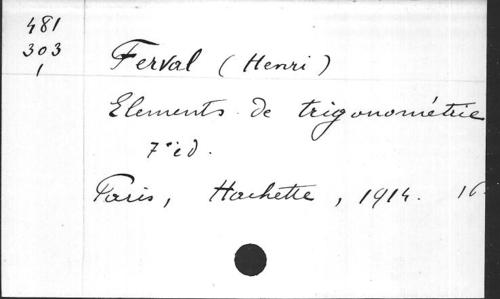 481
303
1
Ferval (Henri)
Elements de trigonométrie
7° éd.
Paris, Hachette, 1914. 16